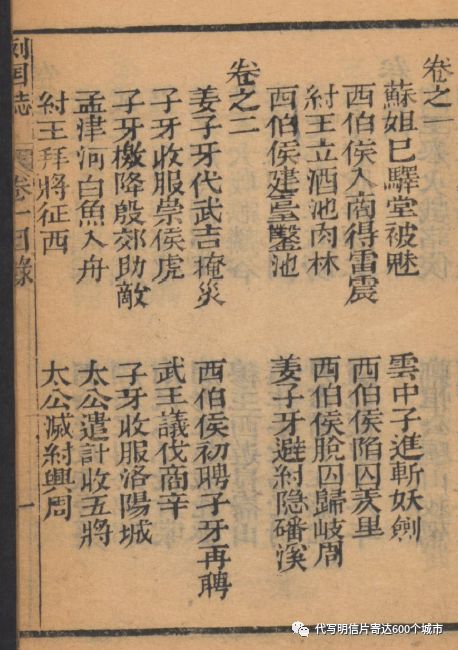 卷之一
蘇妲己驛堂被魅 雲中子進斬妖劍
西伯侯入商得雷震 西伯侯陷囚羑里
紂王立酒池肉林 西伯侯脫囚歸岐周
西伯侯建臺鑿池 姜子牙避紂隐磻溪
卷之二
姜子牙代武吉掩災 西伯侯初聘子牙再聘
子牙收服崇侯虎 武王議伐商辛
子牙檄降殷郊助敵 子牙收服洛陽城
孟津河白魚入舟 太公遣計收五將
紂王拜將征西 太公滅紂興周
列国誌 卷一目錄 一
代写明信片寄达600个城市